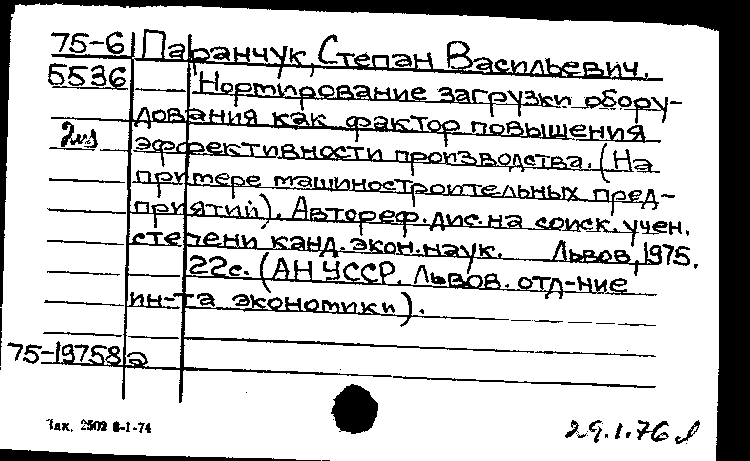 75-6 Паранчук, Степан Васильевич.
5536 "Нормирование загрузки обору-
дования как фактор повышения
2из эффективности производства. (На
примере машиностроительных пред-
приятий). Автореф. дис. на соиск. учен.
степени канд. экон. наук. Львов, 1975.
22с. (АН УССР. Львов. отд-ние
ин-та экономики).
75-19758а
Зак. 2502 6-1-74
29.1.76